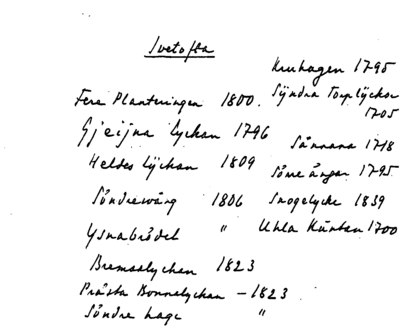 Svetofta
Fere Planteringen 1800.
Gjeijna lyckan 1796
Heldes lyckan 1809
Söndrewång 1806
Ysnabrödet "
Bremsalyckan 1823
Prästa Bonnelyckan – 1823
Söndre hage "
Kruhagen 1795
Syndra Torplyckor
1705
Sånnana 1718
Sörre ängar 1795
Snogelycke 1839
Uhla Kärten 1700